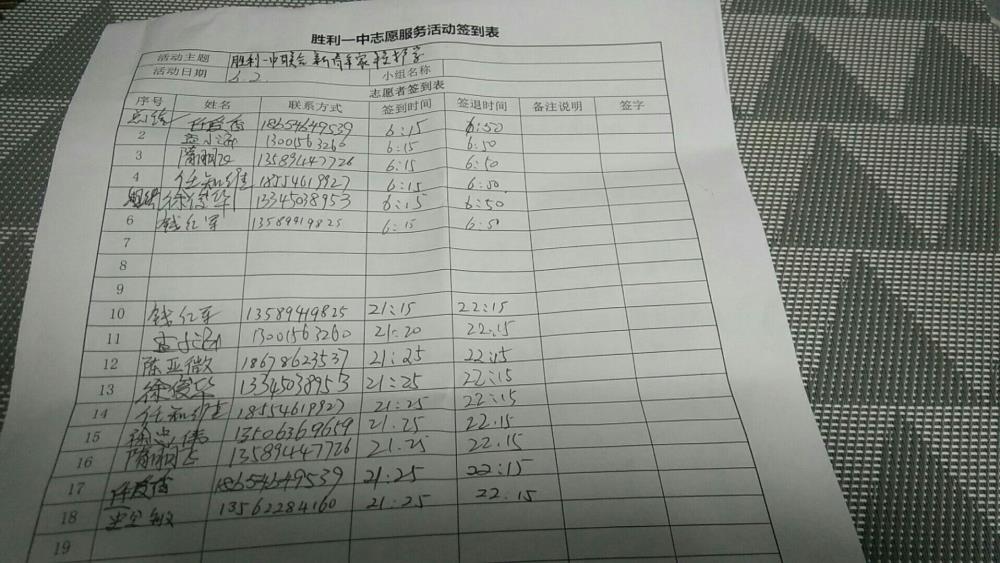 胜利一中志愿服务活动签到表
活动主题 胜利一中联合新育年家程护学
活动日期 6.2. 小组名称
志愿者签到表
序号 姓名 联系方式 签到时间 签退时间 备注说明 签字
18654649539 6:15 6:50
2 孟小涵 13001563266 6:15 6:50
3 隋丽飞 13589447726 6:15 6:50
4 任知维 18554619927 6:15 6:50.
徐俊华 13345038953 6:15 6:50
6 钱红军 13589919825 6:15 6:50
7
8
9
10 钱红军 13589949825 21:15 22:15
11 13001563260 21:20 22.15
12 陈亚微 18678623537 21:25 22:15
13 徐俊华 13345038953 21:25 22:15
14 任知维 18554619927 21:25 22:15
15 13506369659 21.25 22.15
16 隋丽飞 13589447726 21.25 22.15
17 18654649539 21:25 22:15
18 13562284160 21:25 22:15
19